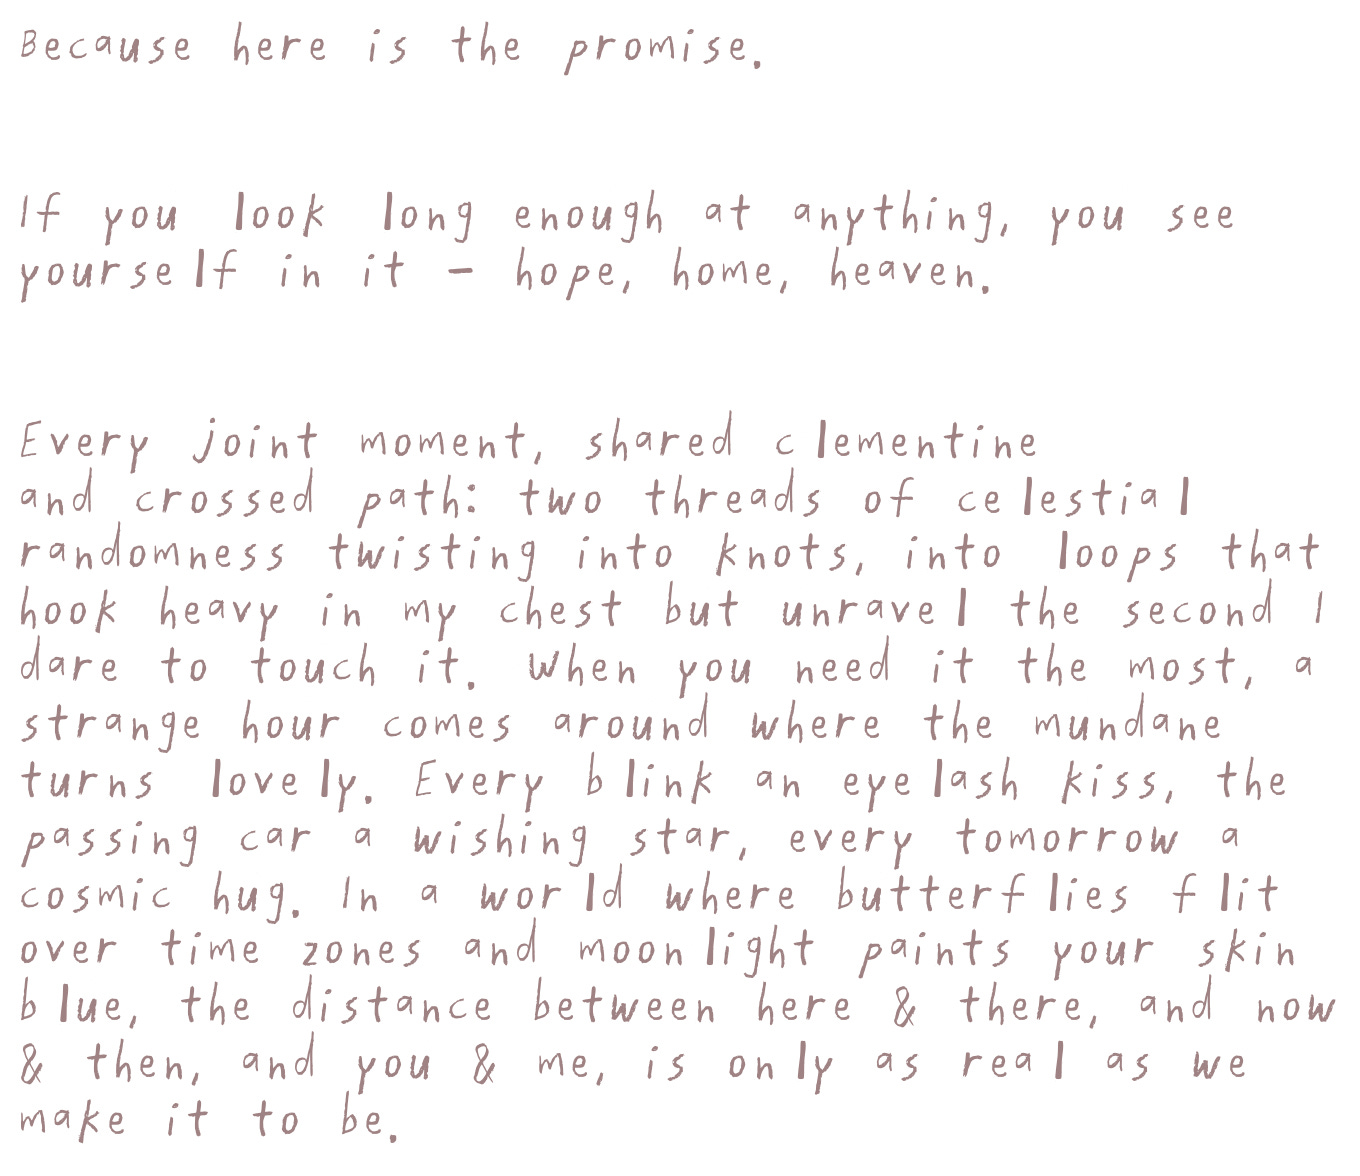 Because here is the promise.
If you look long enough at anything, you see
yourself in it – hope, home, heaven.
Every joint moment, shared clementine
and crossed path: two threads of celestial
randomness twisting into knots, into loops that
hook heavy in my chest but unravel the second I
dare to touch it. When you need it the most, a
strange hour comes around where the mundane
turns lovely. Every blink an eyelash kiss, the
passing car a wishing star, every tomorrow a
cosmic hug. In a world where butterflies flit
over time zones and moonlight paints your skin
blue, the distance between here & there, and now
& then, and you & me, is only as real as we
make it to be.